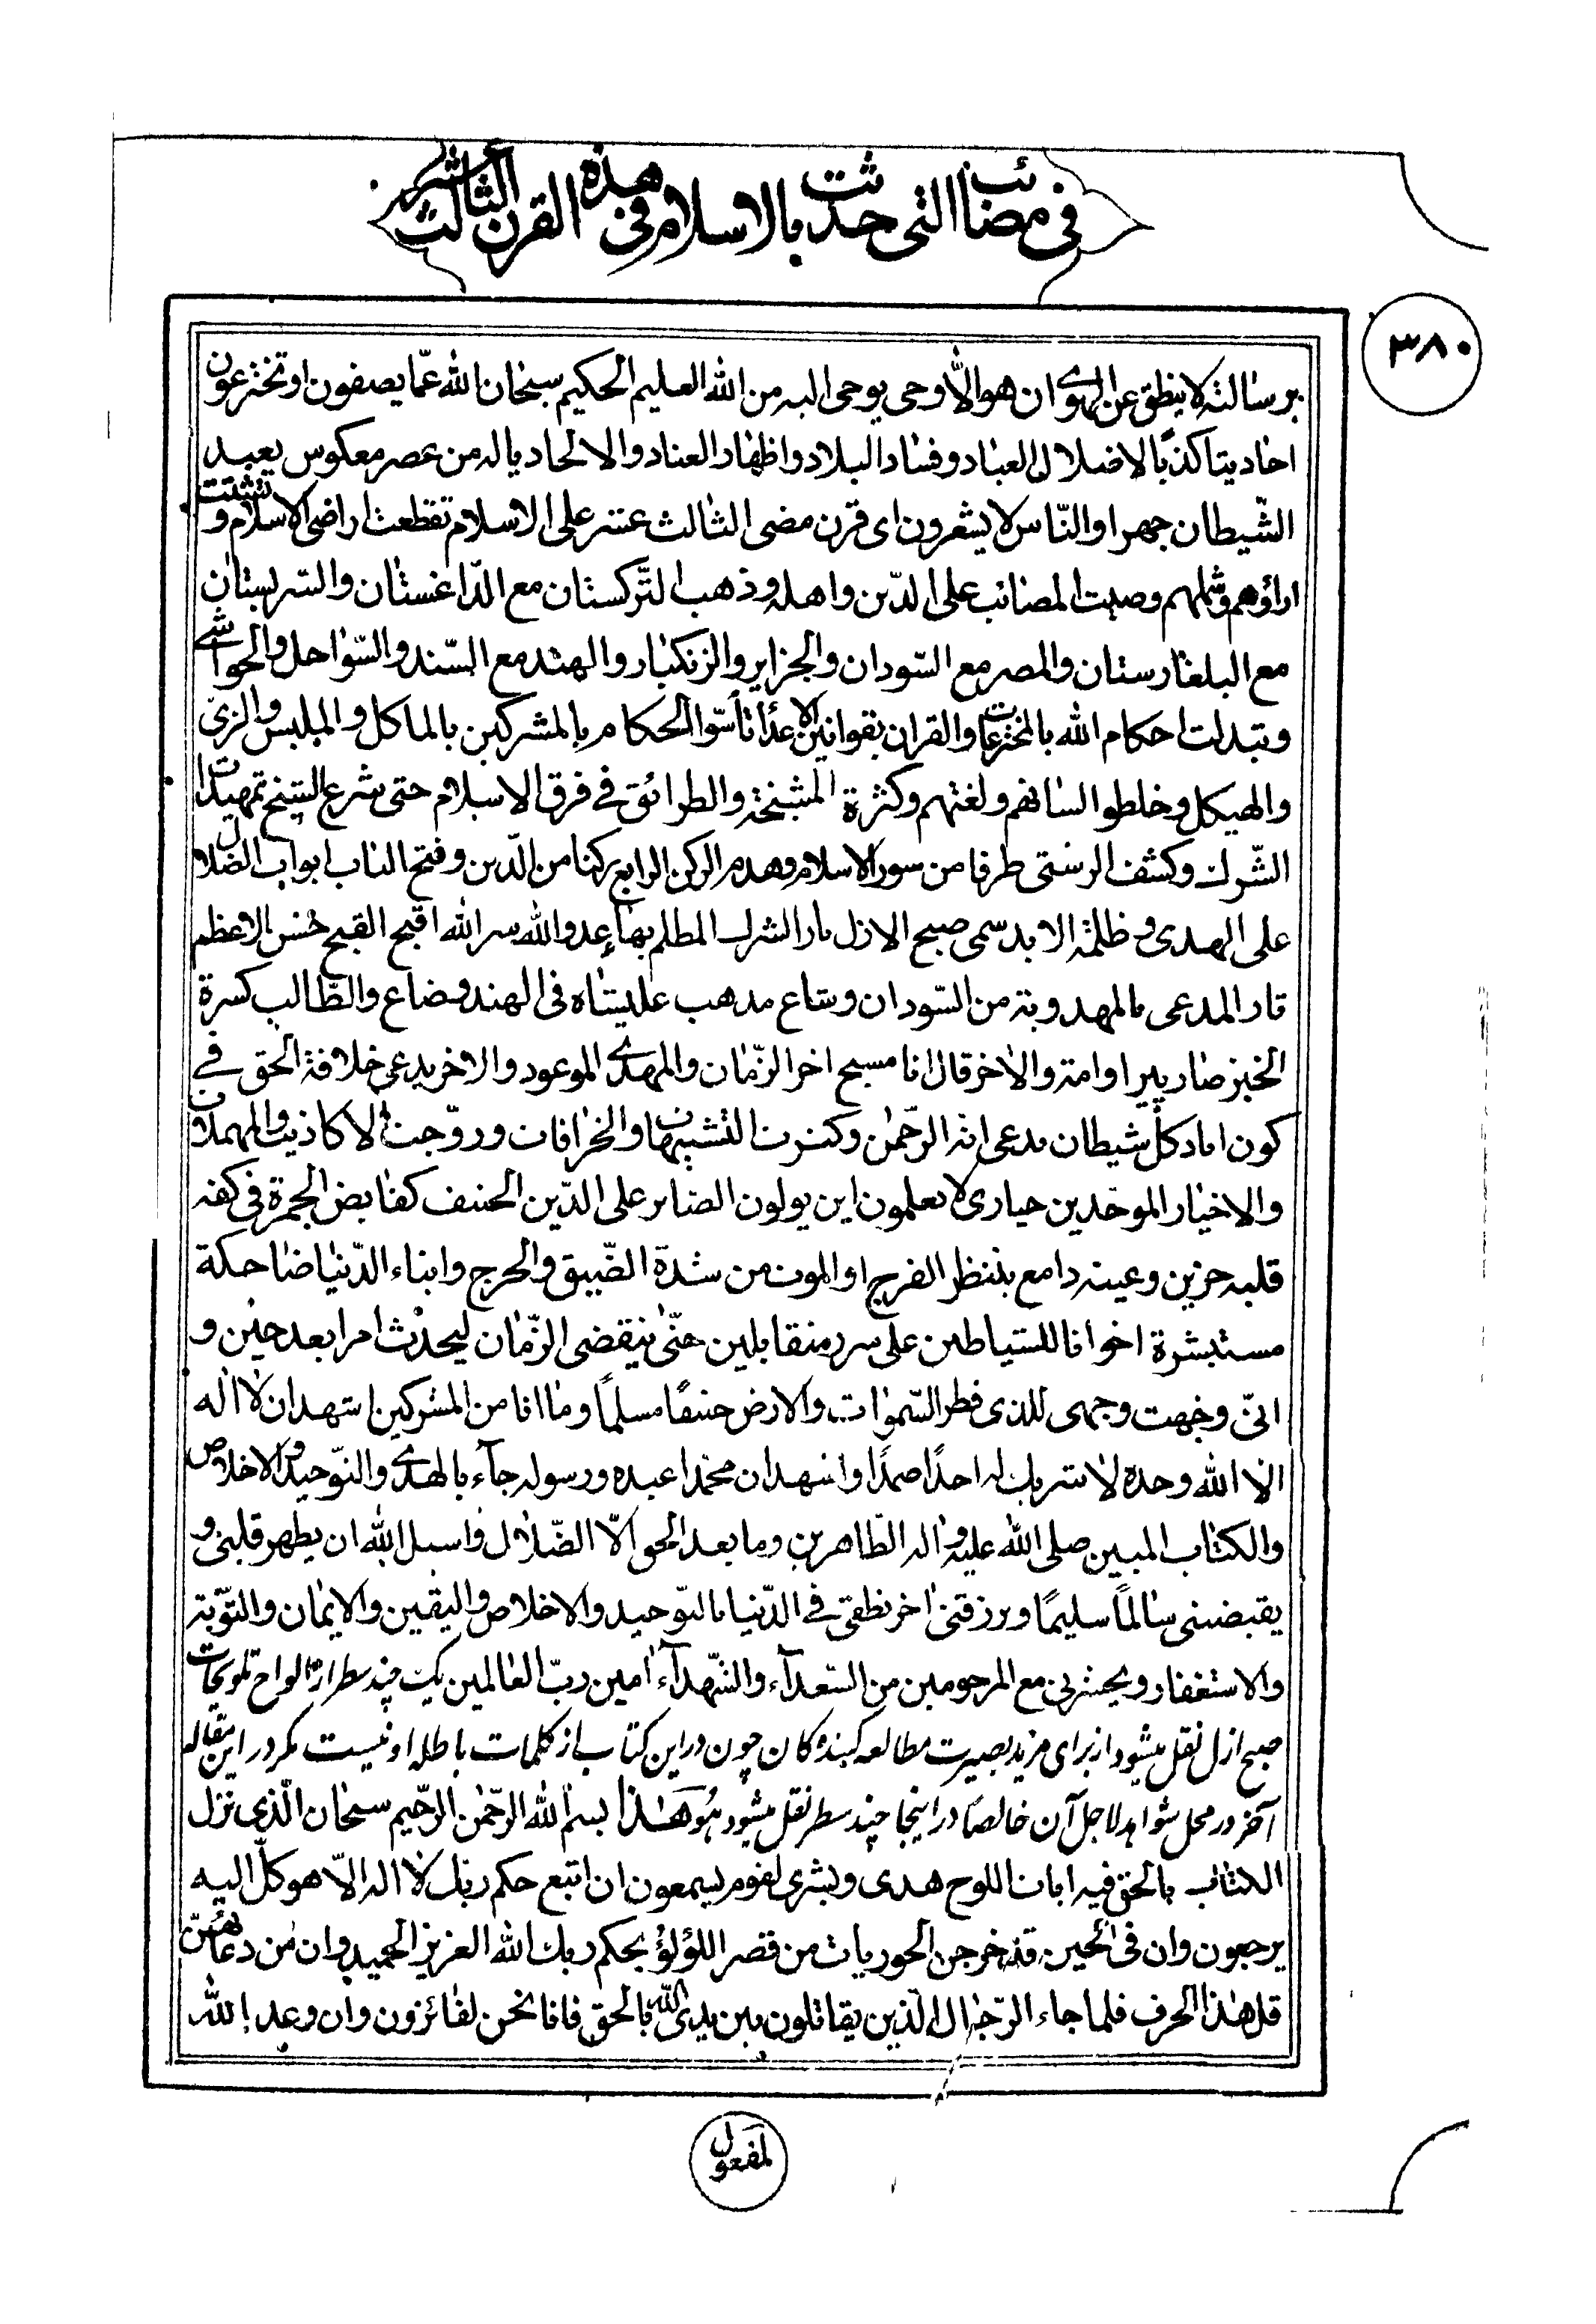 فی مصائب التی حدثت بالاسلام فی هذه القرن الثالث عشر
۳۸۰
برسالته لا ینطق عن الهوی ان هو الّا وحی یوحی الیه من الله العلیم الحکیم سبحان الله عمّا یصفون او تخترعون
احادیثا کذبًا لاضلال العباد و فساد البلاد و اظهار العناد و الالحاد یا له من عصر معکوس یعبد
الشّیطان جهرا و النّاس لا یشعرون ای قرن مضی الثالث عشر علی الاسلام تقطعت اراضی الاسلام و تشتّت
اراؤهم و شملهم و صبت المصائب علی الدّین و اهله و ذهب التّرکستان مع الدّاغستان و السربستان
مع البلغارستان و المصر مع السّودان و الجزایر و الزنکبار و الهند مع السّند و السّواحل و الحواشی
و تبدلت احکام الله بالمخترعات و القران بقوانین الاعدا تأسّوا الحکام بالمشرکین بالماکل و الملبس و الزیّ
و الهیکل و خلطوا السانهم و لغتهم و کثرة المشیخة و الطرائق فی فرق الاسلام حتی شرع الشیخ تمهیدات
الشّرک و کشف الرشتی طرفا من سور الاسلام و هدم الرکن الرابع رکنا من الدّین و فتح الباب ابواب الضّلال
علی الهدی و ظلمة الابد سمی صبح الازل نار الشرک المظلم بهاء عدو الله سر الله اقبح القبح غصن الاعظم
ثار المدعی بالمهدویة من السّودان و شاع مذهب علیشاه فی الهند و ضاع و الطّالب کسرة
الخبز صار پیرا و امة و الاخر قال انا مسیح اخر الزّمان و المهدی الموعود و الاخر یدعی خلافة الحق فی
کون اماد کل شیطان یدعی انه الرّحمٰن و کثرت التشبیهات و الخرافات و روّجت الاکاذیب و المهملات
و الاخیار الموحّدین حیاری لا یعلمون این یولون الصابر علی الدّین الحنیف کقابض الجمرة فی کفه
قلبه حزین و عینه دامع ینتظر الفرج او الموت من شدة الضّیق و الحرج و ابناء الدّنیا ضاحکة
مستبشرة اخوانا للشیاطین علی سرر متقابلین حتّی ینقضی الزّمان لیحدث امرا بعد حین و
انّی وجهت وجهی للذی فطر السّموات و الارض حنیفًا مسلمًا و ما انا من المشرکین اشهد ان لا اله
الا الله وحده لا شریک له احدًا صمدًا و اشهد ان محمّدا عبده و رسوله جآء بالهدی و التّوحید و الاخلاص
و الکتاب المبین صلی الله علیه و اله الطّاهرین و ما بعد الحق الّا الضّلال و اسئل الله ان یطهر قلبی و
یقبضنی سالمًا سلیمًا و یرزقنی اخر نطقی فی الدّنیا بالتّوحید و الاخلاص و الیقین و الایمان و التّوبة
و الاستغفار و یحشرنی مع المرحومین من السّعدآء و الشّهدآء امین ربّ العالمین یک چند سطر از الواح تلویحات
صبح ازل نقل میشود از برای مزید بصیرت مطالعه کننده کان چون در این کتاب از کلمات باطله او نیست مکر در این مقاله
آخر در محل شواهد لاجل آن خالصًا در اینجا چند سطر نقل میشود هُوَ هٰذا بسم الله الرّحمٰن الرّحیم سبحان الّذی نزل
الکتاب بالحق فیه ایات اللوح هدی و بشری لقوم یسمعون ان اتبع حکم ربک لا اله الّا هو کلّ الیه
یرجعون و ان فی الحین قد خرجن الحوریات من قصر اللؤلؤ بحکم ربک الله العزیز الحمید و ان من دعائهنّ
قل هٰذا الحرف فلما جاء الرّجال الّذین یقاتلون بین یدی الله بالحق فانا نحن لفائزون و ان وعد الله
لمفعول